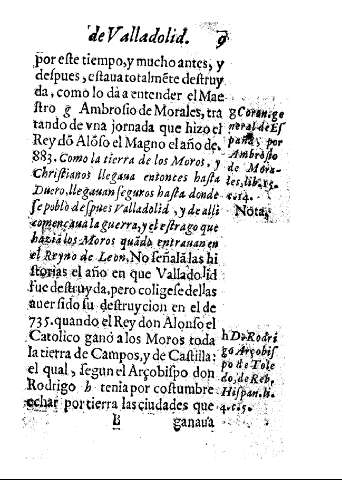 de Valladolid. 9
por este tiempo, y mucho antes, y
despues, estaua totalmẽte destruy
da, como lo dà a entender el Mae
stro g Ambrosio de Morales, tra
tando de vna jornada que hizo el
Rey dõ Alõso el Magno el año de
883. Como la tierra de los Moros, y
Christianos llegaua entonces hasta
Duero, llegauan seguros hasta donde
se poblo despues Valladolid, y de alli
començaua la guerra, y el estrago que
haziã los Moros quãdo entrauan en
el Reyno de Leon. No señalã las hi
storias el año en que Valladolid
fue destruyda, pero coligese dellas
auer sido su destruycion en el de
735. quando el Rey don Alonso el
Catolico ganò a los Moros toda
la tierra de Campos, y de Castilla:
el qual, segun el Arçobispo don
Rodrigo h tenia por costumbre
echar por tierra las ciudades que
B ganaua
g Coronica
general de Es
paña, por
Ambrosio
de Mora-
les, lib. 15.
c. 14.
Nota.
h D. Rodri
go Arçobis
po de Tole
do, de Reb.
Hispan. li.
4. c. 5.